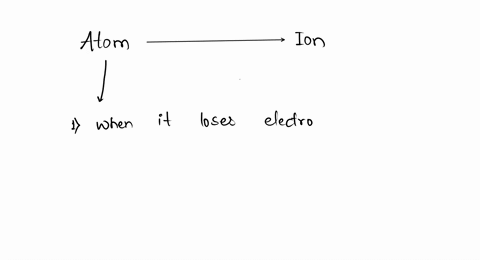 Atom Ion
1) when it loses electro